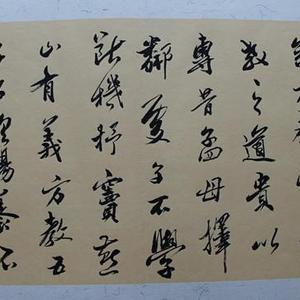 教之道貴以
專昔孟母擇
鄰處子不學
斷機杼竇燕
山有義方教五
子名俱揚養不